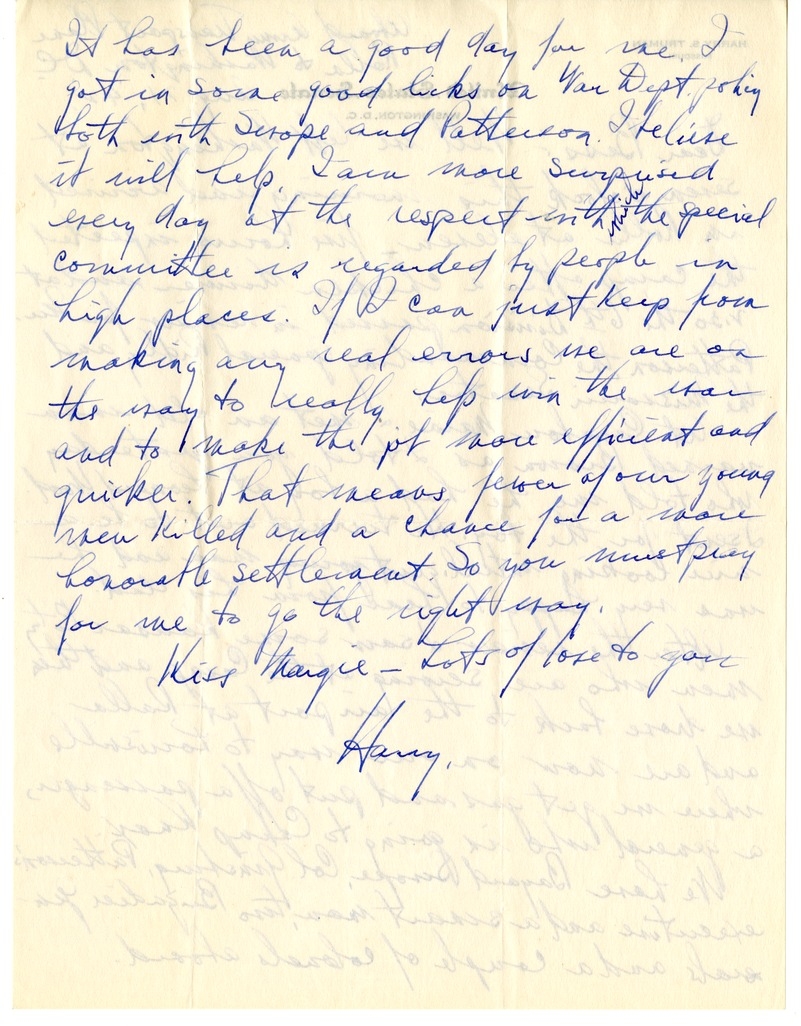 It has been a good day for me I
got in some good licks on War Dept. policy
both with Scrope and Patterson. I believe
it will help. I am more surprised
every day at the respect with which the special
committee is regarded by people in
high places. If I can just keep from
making any real errors we are on
the way to really help win the war
and to make the job more efficient and
quicker. That means fewer of our young
men killed and a chance for a more
honorable settlement. So you must pray
for me to go the right way.
Kiss Margie - Lots of love to you
Harry.